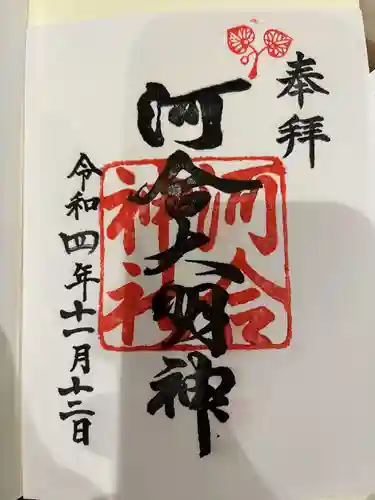 奉拝
河合大明神
河合
神社
令和四年十一月十二日